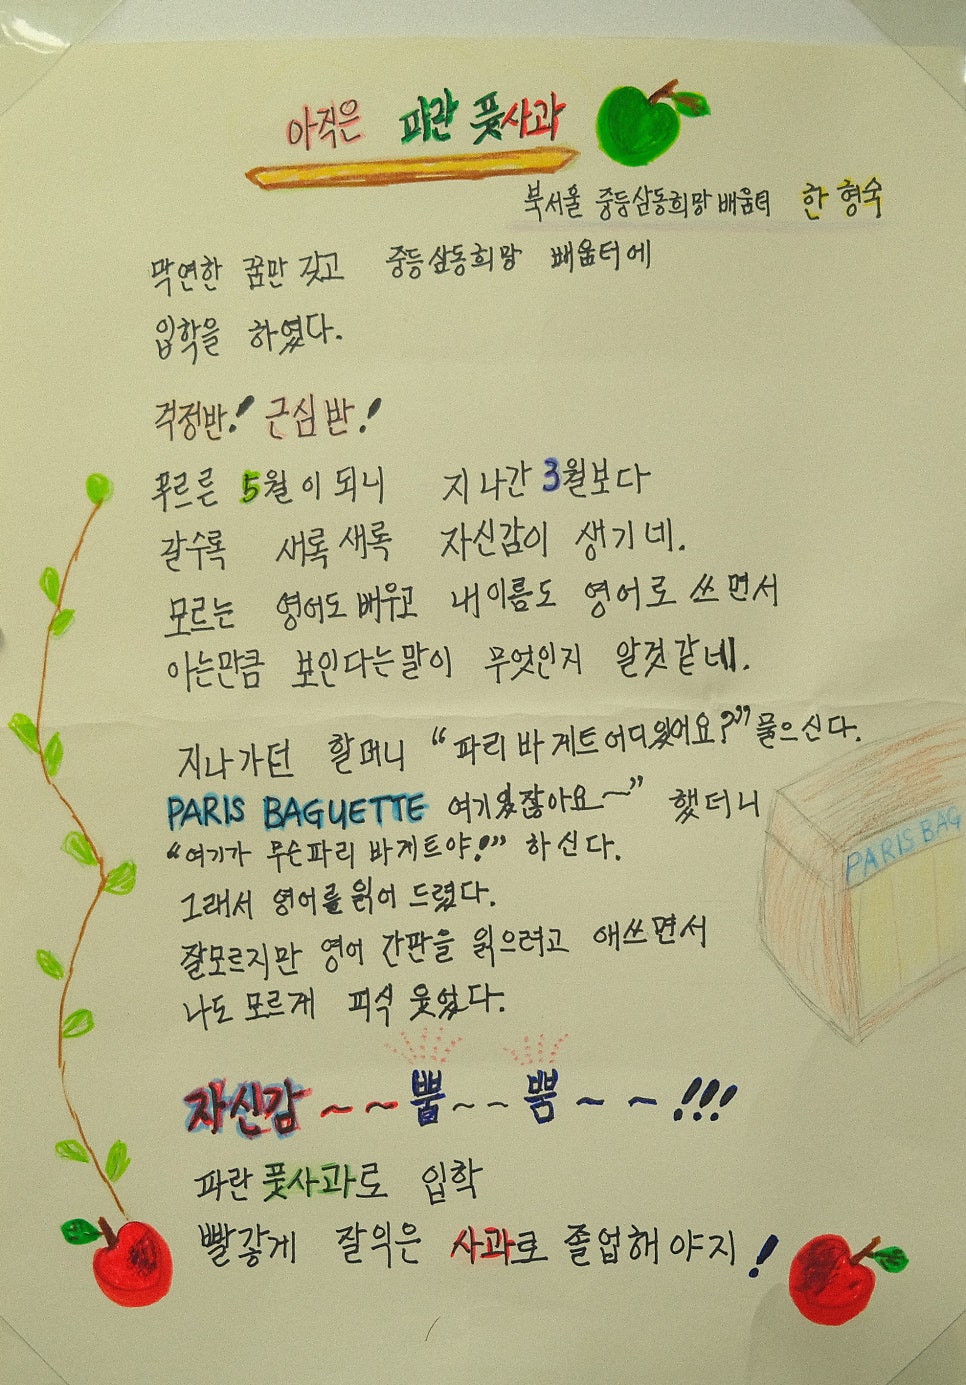 아직은 파란 풋사과
북서울 중등삼동희망배움터 한형숙
막연한 꿈만 갖고 중등삼동희망 배움터에
입학을 하였다.
걱정반! 근심반!
푸르른 5월이 되니 지나간 3월보다
갈수록 새록새록 자신감이 생기네.
모르는 영어도 배우고 내이름도 영어로 쓰면서
아는만큼 보인다는말이 무엇인지 알것같네.
지나가던 할머니 "파리바게트어디있어요?" 물으신다.
PARIS BAGUETTE 여기있잖아요~" 했더니
"여기가 무슨파리바게트야!" 하신다.
그래서 영어를 읽어 드렸다.
잘모르지만 영어 간판을 읽으려고 애쓰면서
나도모르게 피식 웃었다.
PARIS BAG
자신감~~뿜~~뿜~~!!!
파란풋사과로 입학
빨갛게 잘익은 사과로 졸업해야지!